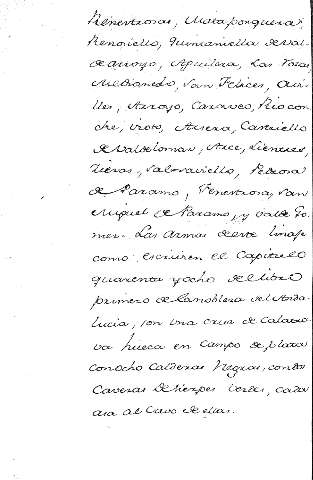 Renestrosas, Mata porquera,
Renoiello, Quintanilla de Val-
de arroyo, Aguilera, Las Rozas
Mediando, San Felices, Avi-
lles, Arroyo, Caraveo, Rio con-
che, Vioto, Ausera, Castriello
de Valdelomar, Arce, Lienzres,
Salcraviello, Pedrosa
de Paramo, Fenestrosa, San
Miguel de Paramo, y Val de Go-
mer. Las Armas deste linaje
como escriven el Capitulo
quarenta y ocho del libro
primero de la nobleza del Anda-
lucia, son una cruz de Calatra-
va hueca en Campo de plata
con ocho Calderas Negras, con las
Caveras de sierpes verdes, cada
una al Cavo de ellas.